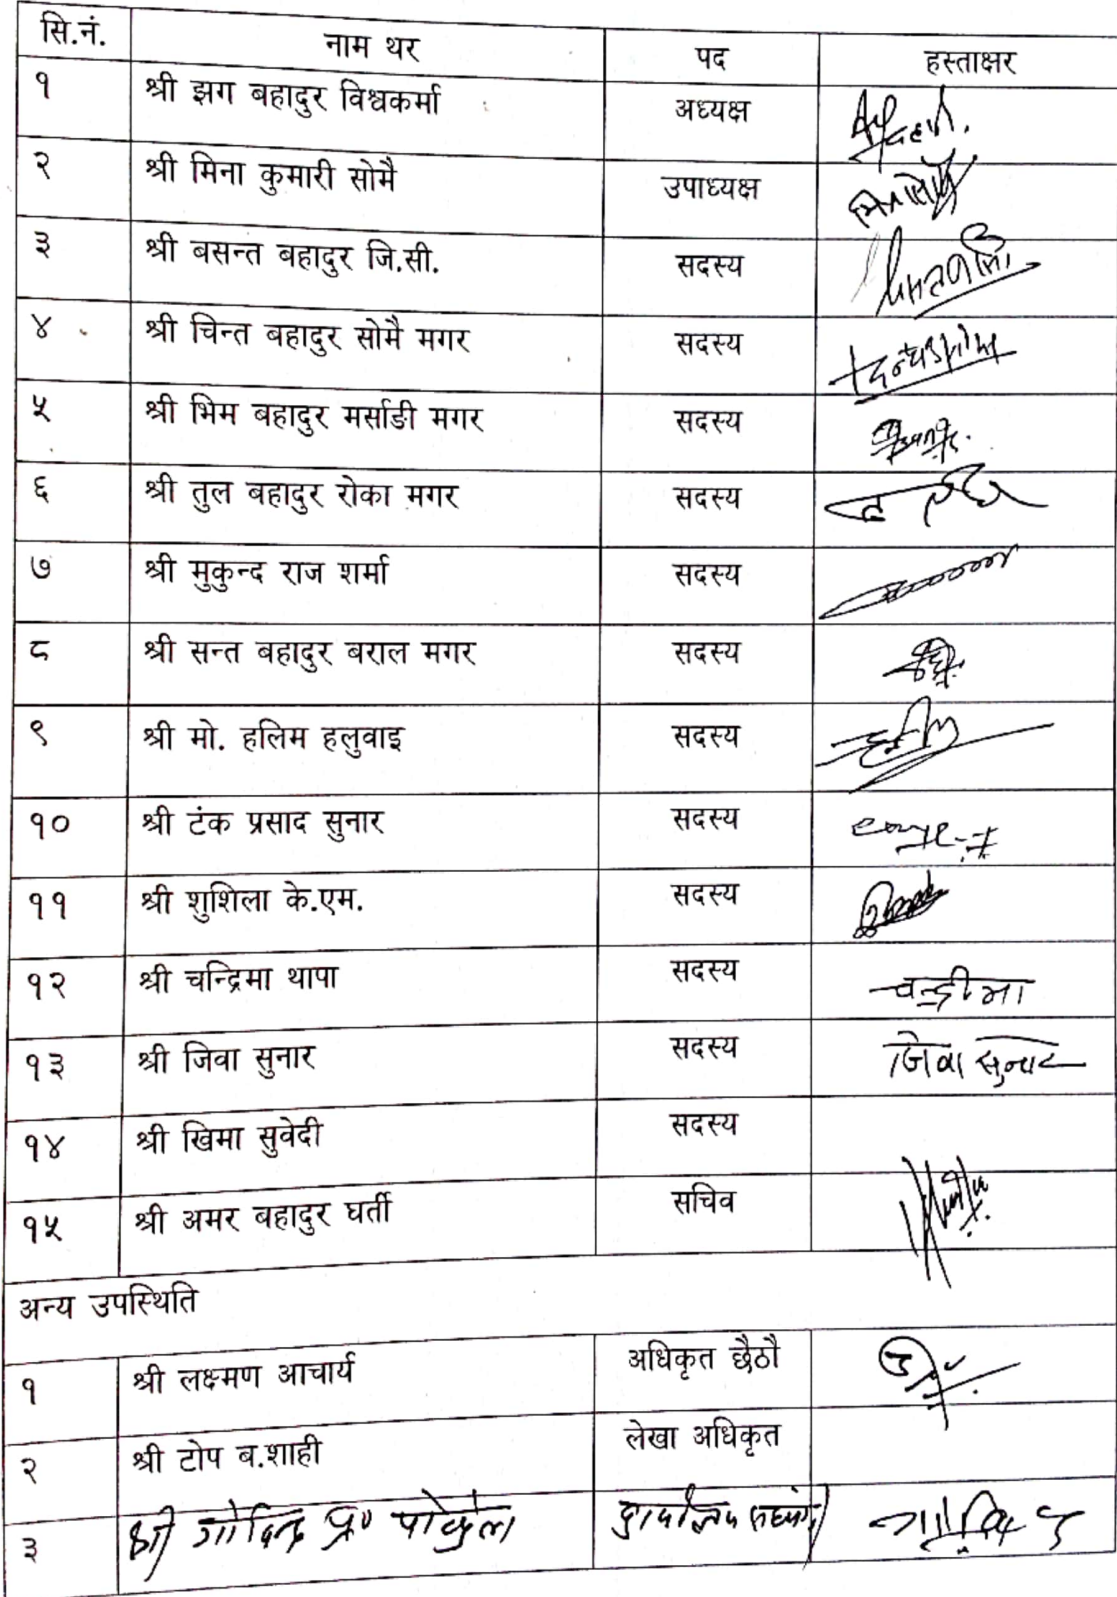 सि.नं. नाम थर पद हस्ताक्षर
१ श्री झग बहादुर विश्वकर्मा अध्यक्ष
२ श्री मिना कुमारी सोमै उपाध्यक्ष
३ श्री बसन्त बहादुर जि.सी. सदस्य
४ श्री चिन्त बहादुर सोमै मगर सदस्य
५ श्री भिम बहादुर मर्साङी मगर सदस्य
६ श्री तुल बहादुर रोका मगर सदस्य
७ श्री मुकुन्द राज शर्मा सदस्य
८ श्री सन्त बहादुर बराल मगर सदस्य
९ श्री मो. हलिम हलुवाइ सदस्य
१० श्री टंक प्रसाद सुनार सदस्य
११ श्री शुशिला के.एम. सदस्य
१२ श्री चन्द्रिमा थापा सदस्य चन्द्रीमा
१३ श्री जिवा सुनार सदस्य जिवा सुनार
१४ श्री खिमा सुवेदी सदस्य
१५ श्री अमर बहादुर घर्ती सचिव
अन्य उपस्थिति
१ श्री लक्ष्मण आचार्य अधिकृत छैठौ
२ श्री टोप ब.शाही लेखा अधिकृत
३ श्री गोविन्द प्र० पोख्रेल